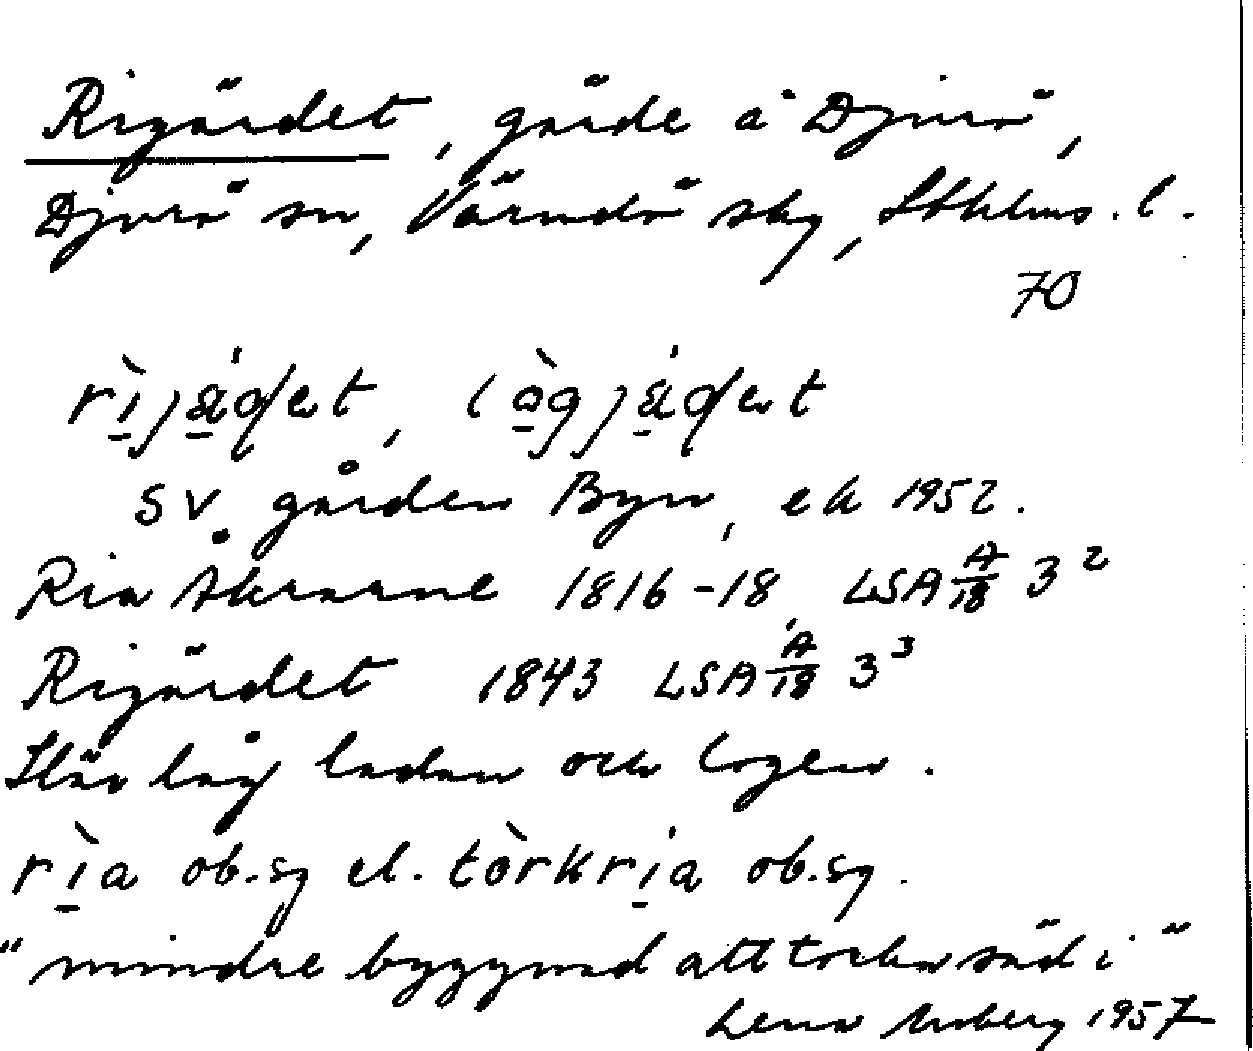 Rigärdet, gärde å Djurö,
Djurö sn, Värmdö skg, Sthlms. l.
70
rìjä́ḍet, lågjä́ḍet
SV gården Byn, ek 1952.
Ria Åkrarne 1816-18, LSA A/18 3²
Rigärdet 1843 LSA A/18 3³
Här låg ladan och logen.
rìa ob.sg el. tòrkría ob.sg.
"mindre byggnad att torka säd i"
Lena Moberg 1957